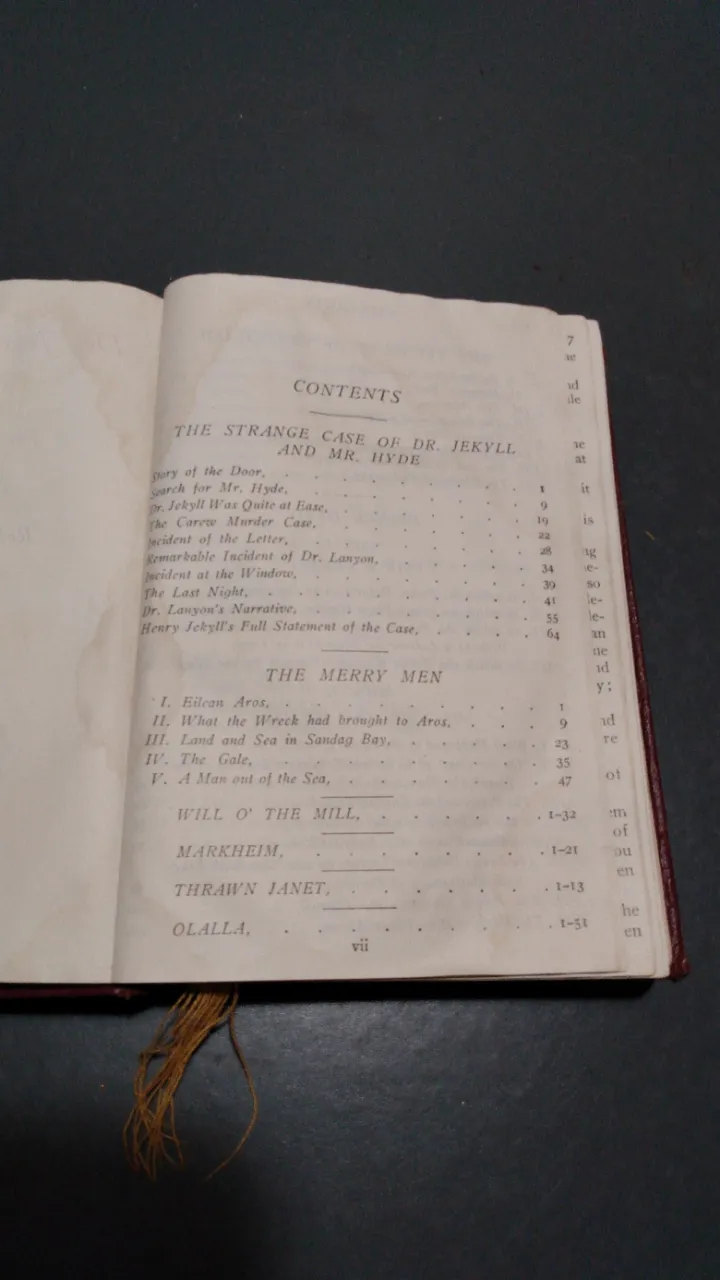 CONTENTS
THE STRANGE CASE OF DR. JEKYLL
AND MR. HYDE
Story of the Door, . . . . . . . 1
Search for Mr. Hyde, . . . . . . . 9
Dr. Jekyll Was Quite at Ease, . . . . . 19
The Carew Murder Case, . . . . . . 22
Incident of the Letter, . . . . . . . 28
Remarkable Incident of Dr. Lanyon, . . . . 34
Incident at the Window, . . . . . . 39
The Last Night, . . . . . . . . 41
Dr. Lanyon's Narrative, . . . . . . 55
Henry Jekyll's Full Statement of the Case, . . . . 64
THE MERRY MEN
I. Eilean Aros, . . . . . . . . 1
II. What the Wreck had brought to Aros, . . . . 9
III. Land and Sea in Sandag Bay, . . . . . 23
IV. The Gale, . . . . . . . . 35
V. A Man out of the Sea, . . . . . . 47
WILL O' THE MILL, . . . . . . 1-32
MARKHEIM, . . . . . . . . 1-21
THRAWN JANET, . . . . . . . 1-13
OLALLA, . . . . . . . . 1-51
vii